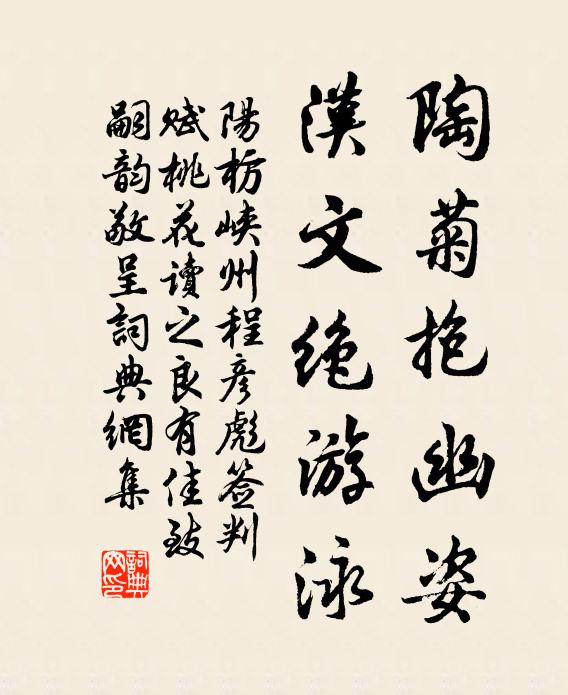 陶菊抱幽姿
漢文絶游泳
陽枋峽州程彦彪簽判
賦桃花讀之良有佳致
嗣韵敬呈詞典網集
詞典
网印